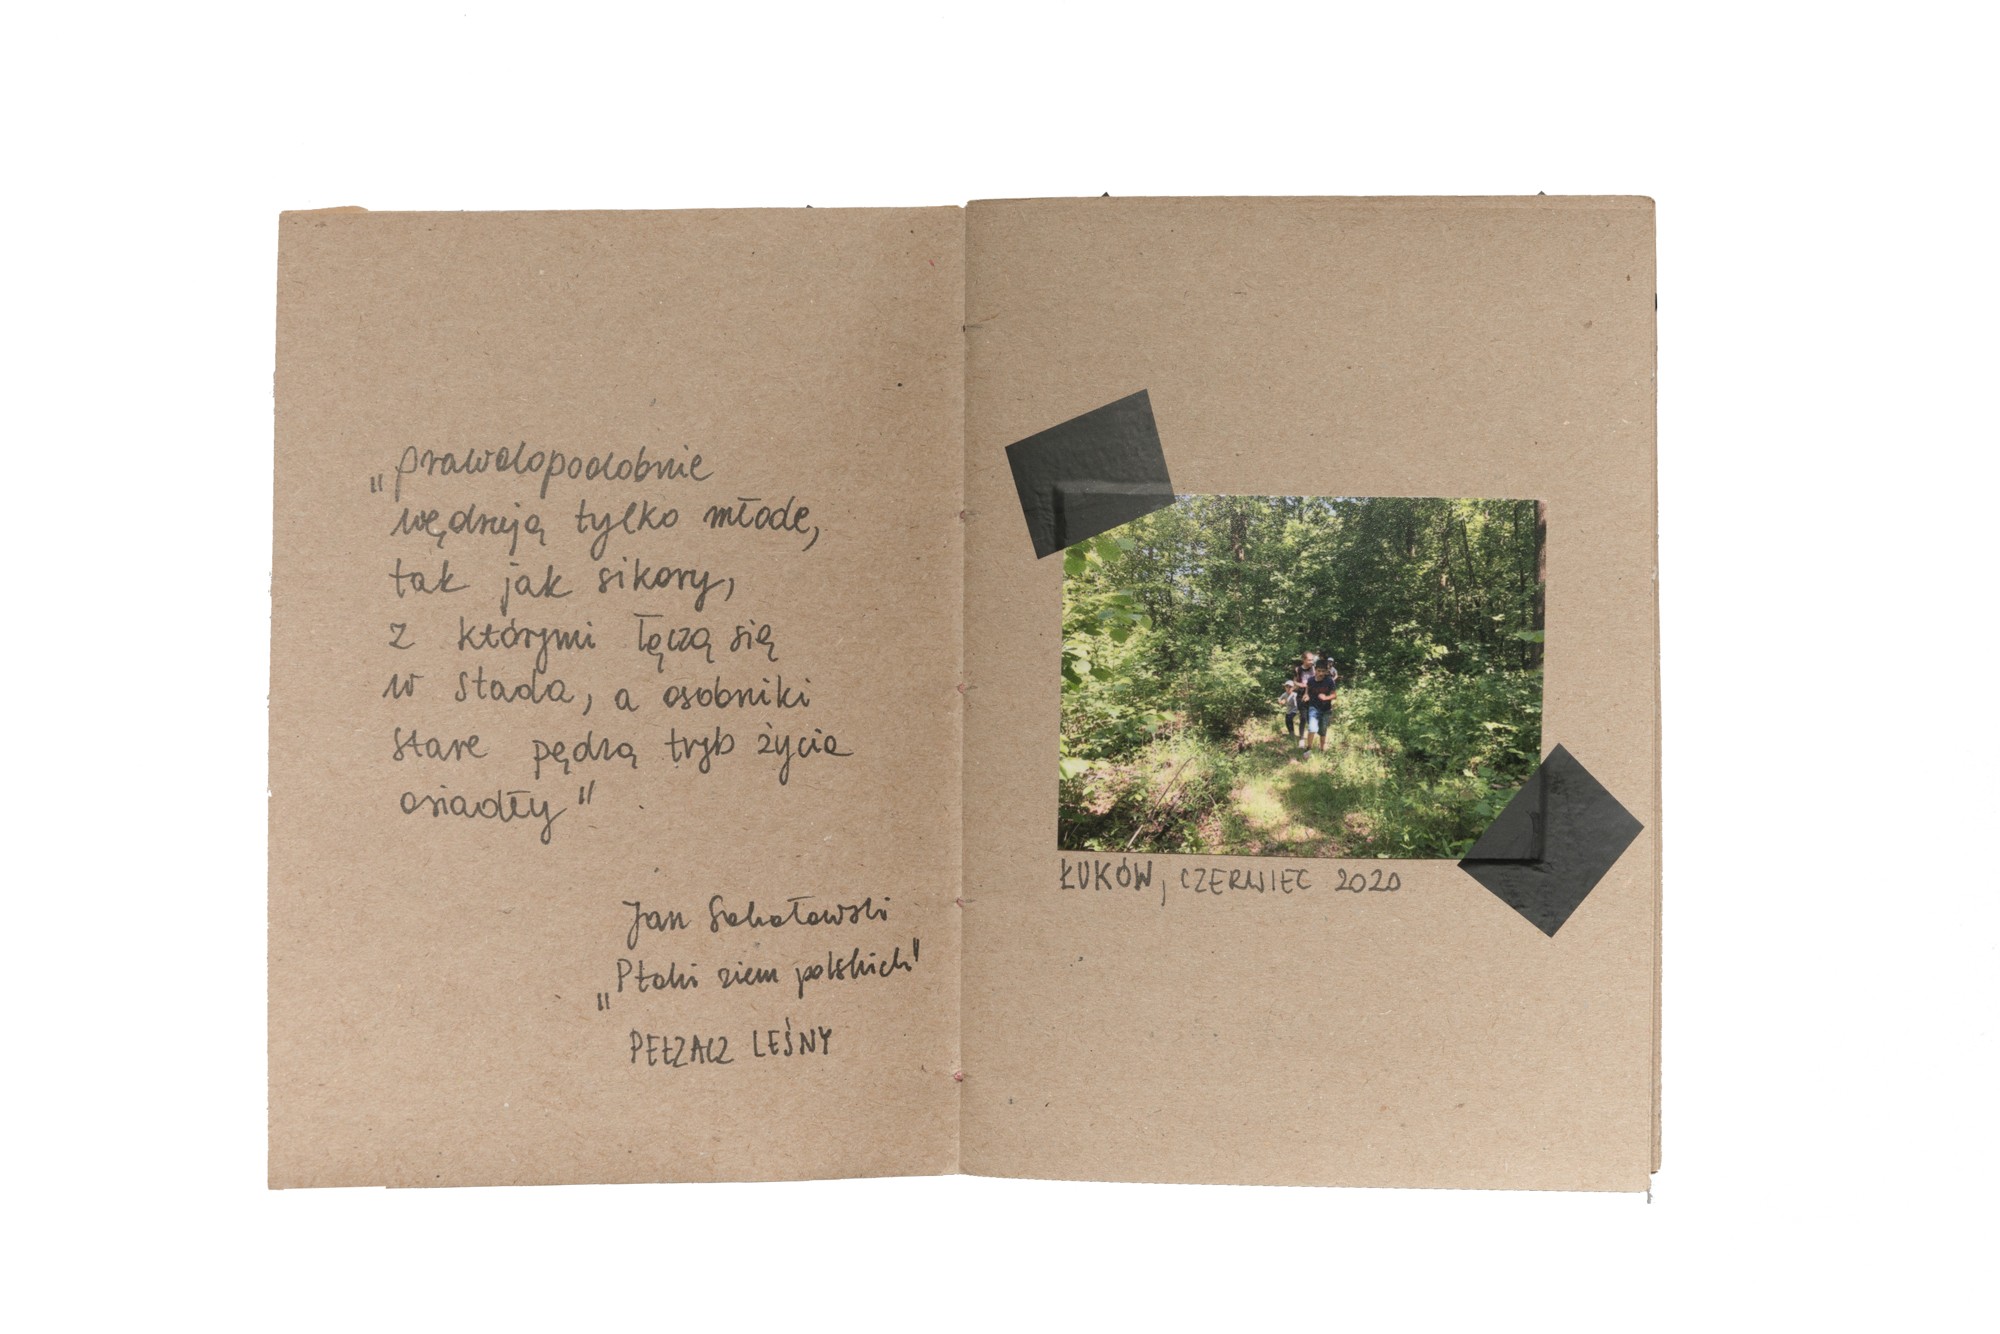 „prawdopodobnie
wędrują tylko młode,
tak jak sikory,
z którymi łączą się
w stada, a osobniki
stare pędzą tryb życia
osiadły"
Jan Sokołowski
„Ptaki ziem polskich"
PEŁZACZ LEŚNY
ŁUKÓW, CZERWIEC 2020